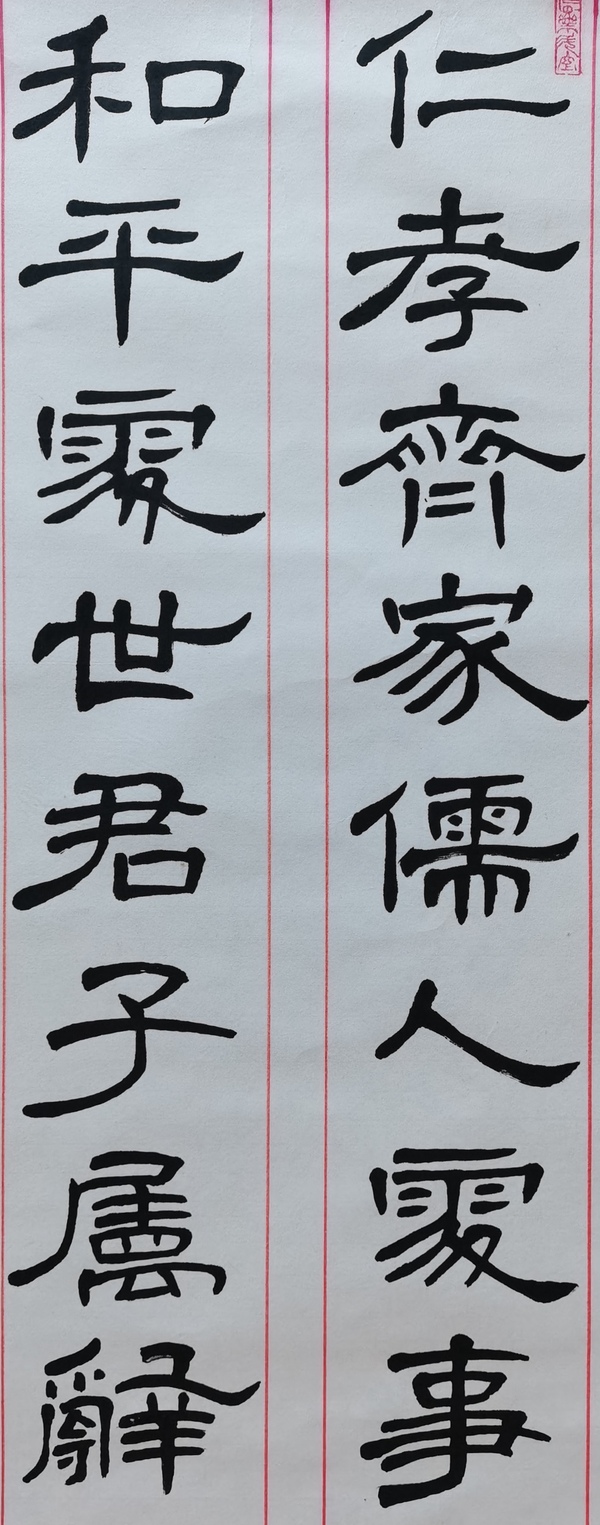 仁孝齊家儒人處事
和平處世君子屬辭